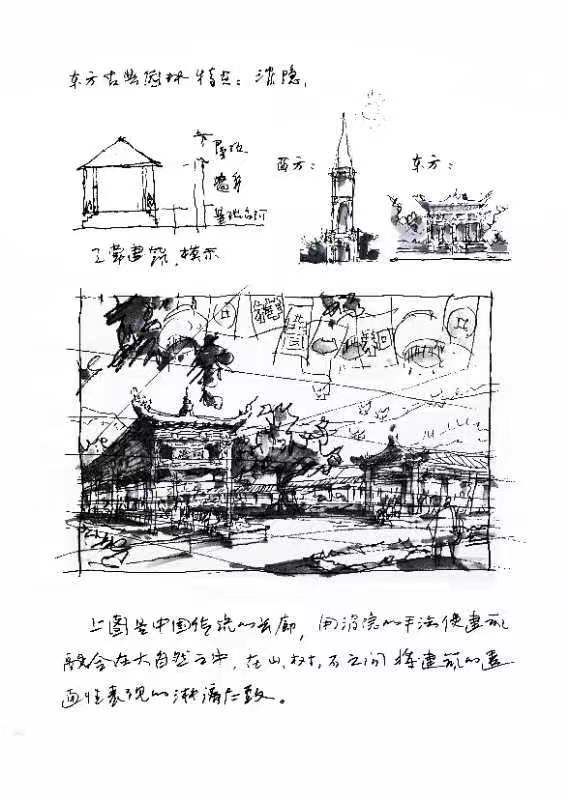 东方古典园林特点：消隐，
屋顶
墙身
基础台阶
西方：
东方：
建筑
上图是中国传统的长廊，用消隐的手法使建筑
融合在大自然之中，在山，树，石之间将建筑的画
面性表现的淋漓尽致。